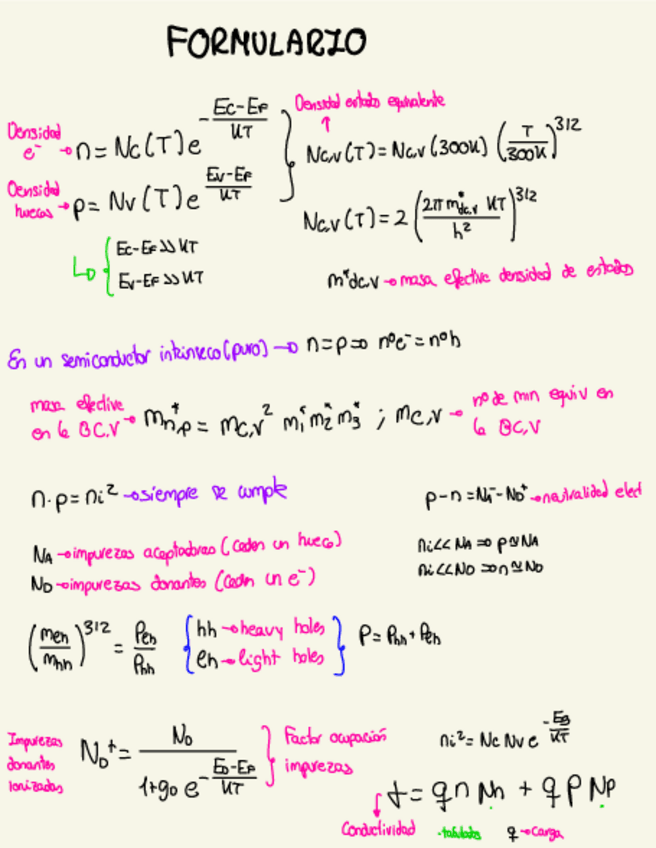 FORMULARIO
Densidad e⁻ → n = Nc(T) e^(-(Ec-EF)/KT)
Densidad estado equivalente
Nc,v(T) = Nc,v(300K) (T/300K)^3/2
Densidad huecos → p = Nv(T) e^((Ev-EF)/KT)
Nc,v(T) = 2 (2π m*dc,v KT / h²)^3/2
Ec-EF >> KT
Ev-EF >> KT
m*dc,v → masa efective densidad de estados
En un semiconductor intrinseco (puro) → n = p ⇒ nºe⁻ = nºh
masa efective en la BC,V → m*n,p = mc,v² m1* m2* m3* ; mc,v → nº de min equiv en la BC,V
n·p = ni² → siempre se cumple
p-n = NA⁻ - ND⁺ → neutralidad elect
NA → impurezas aceptadoras (ceden un hueco)
ni << NA ⇒ p ≃ NA
ND → impurezas donantes (ceden un e⁻)
ni << ND ⇒ n ≃ ND
(meh/mhh)^3/2 = Peh/Phh { hh → heavy holes
eh → light holes } P = Phh + Peh
Impurezas donantes ionizadas ND⁺ = ND / (1 + g0 e^(-(ED-EF)/KT)) } Factor ocupación impurezas
ni² = Nc Nv e^(-Eg/KT)
σ = q n Nn + q p Np
Conductividad · tabulados q → carga